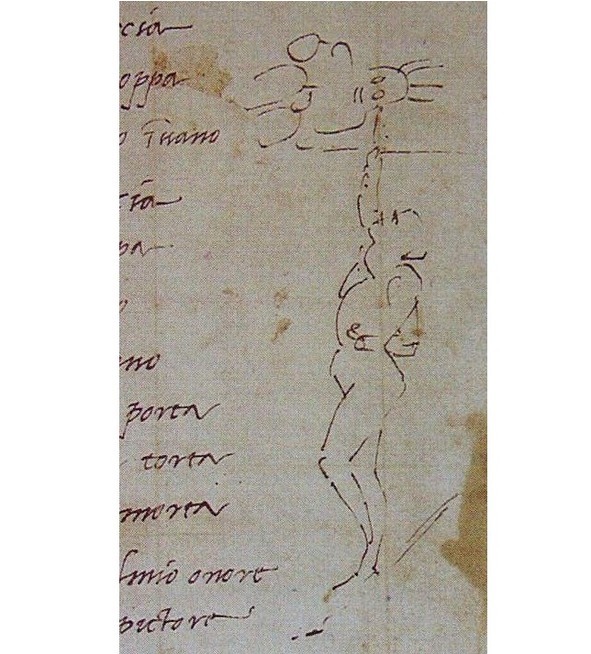 ccia
oppa
o Tuano
cia
pa
o
eno
porta
torta
morta
l mio onore
pictore